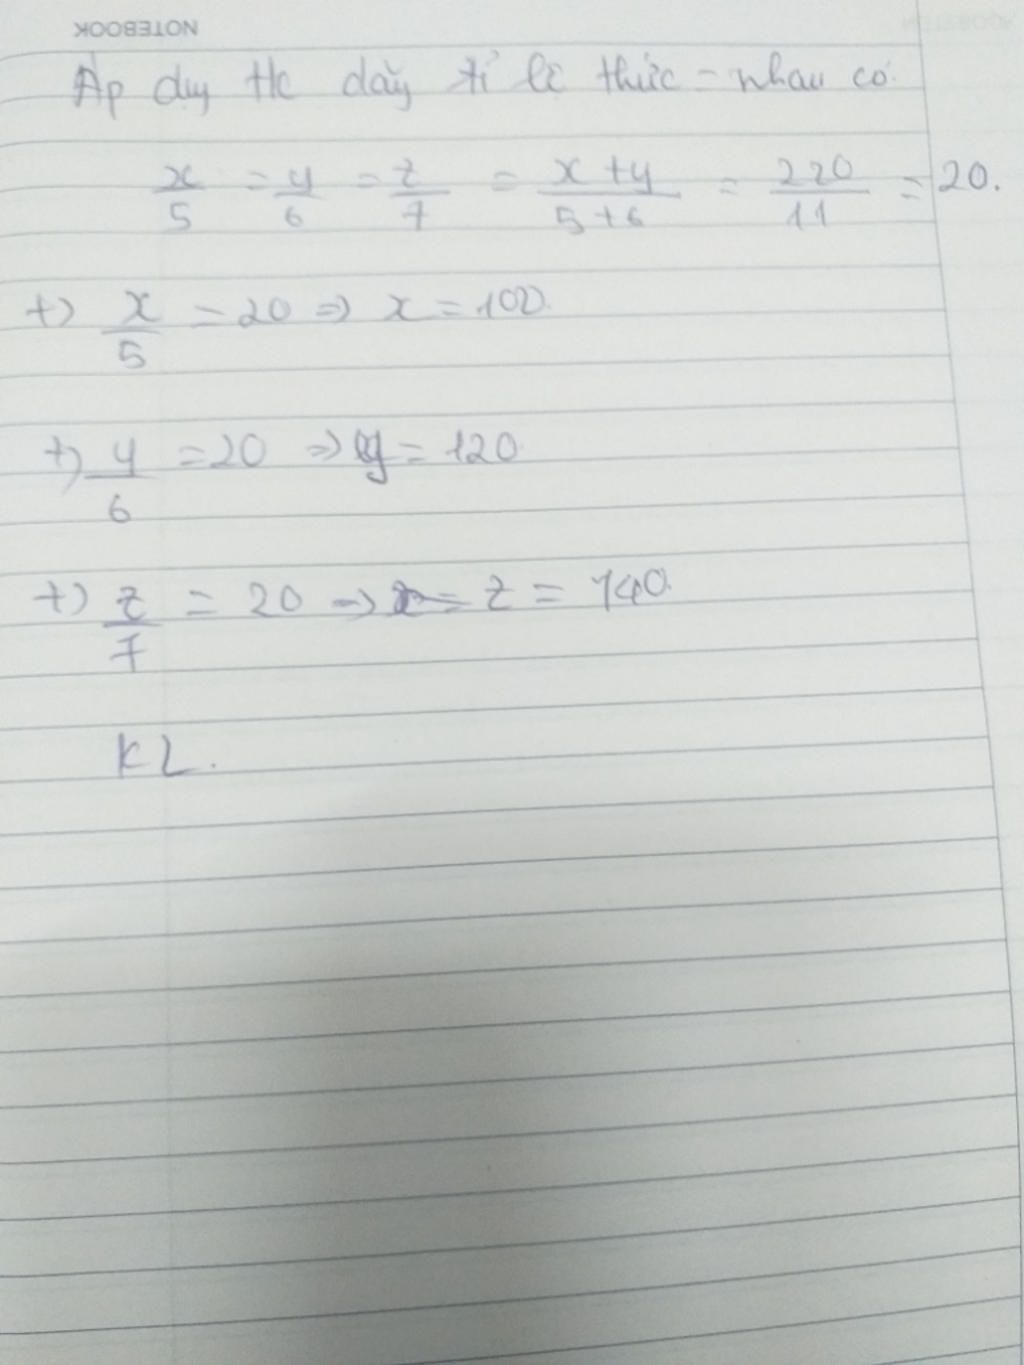 NOTEBOOK
Áp dụg t/c dãy tỉ lệ thức = nhau có
x/5 = y/6 = z/7 = x+y/5+6 = 220/11 = 20.
+) x/5 = 20 => x = 100.
+) y/6 = 20 => y = 120
+) z/7 = 20 => z = 140.
KL.